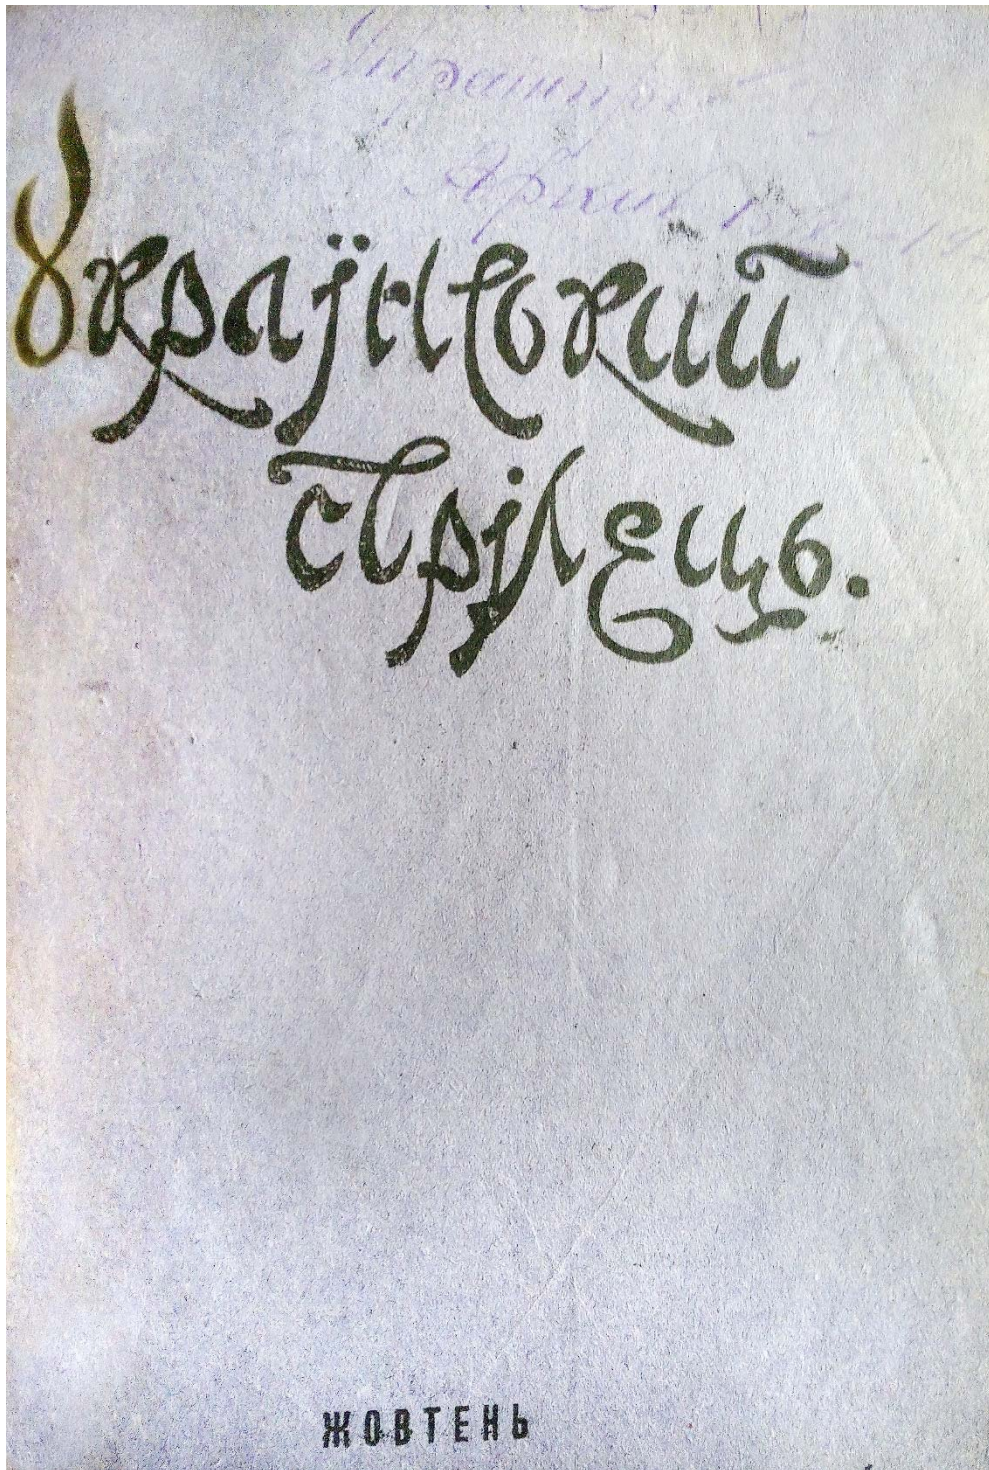 Український
стрілець.
ЖОВТЕНЬ